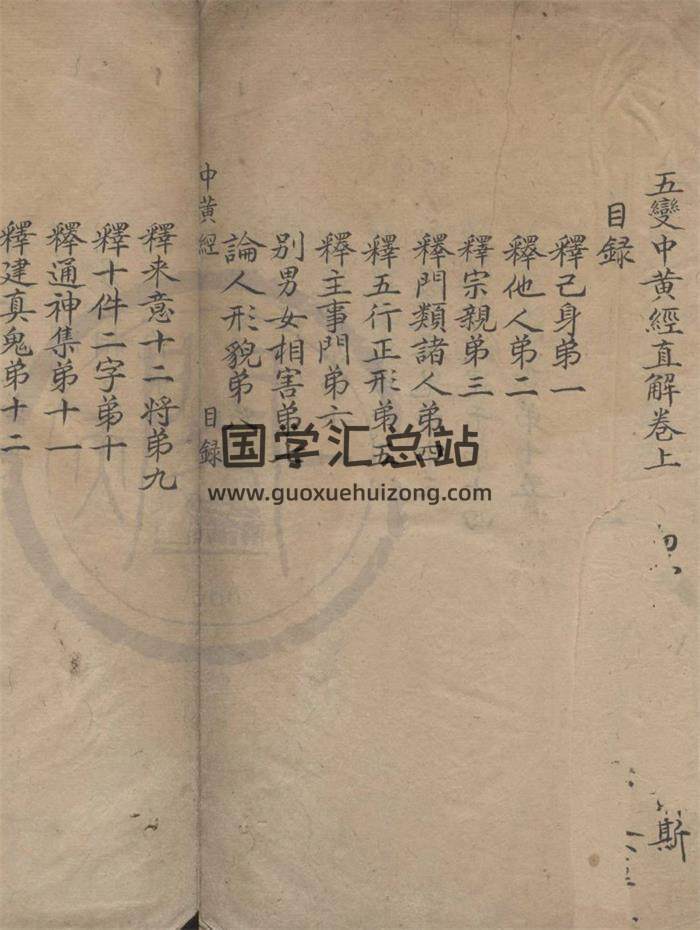 五變中黃經直解卷上
目録
釋己身弟一
釋他人弟二
釋宗親弟三
釋門類諸人弟四
釋五行正形弟五
釋主事門弟六
別男女相害弟
論人形貌弟
中黃經
目録
釋来意十二將弟九
釋十件二字弟十
釋通神集弟十一
釋建真鬼弟十二
斯
国学汇总站
www.guoxuehuizong.com